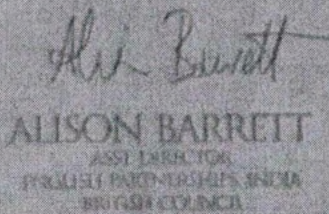 Alison Barrett
ALISON BARRETT
ASST DIRECTOR
ENGLISH PARTNERSHIPS, INDIA
BRITISH COUNCIL